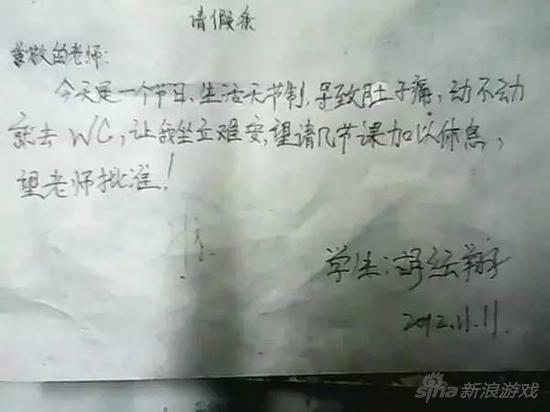 请假条
尊敬的老师:
今天是一个节日、生活无节制,导致肚子痛,动不动
就去WC,让我坐立难安,望请几节课加以休息,
望老师批准!
学生:
2012.11.11.
sina新浪游戏